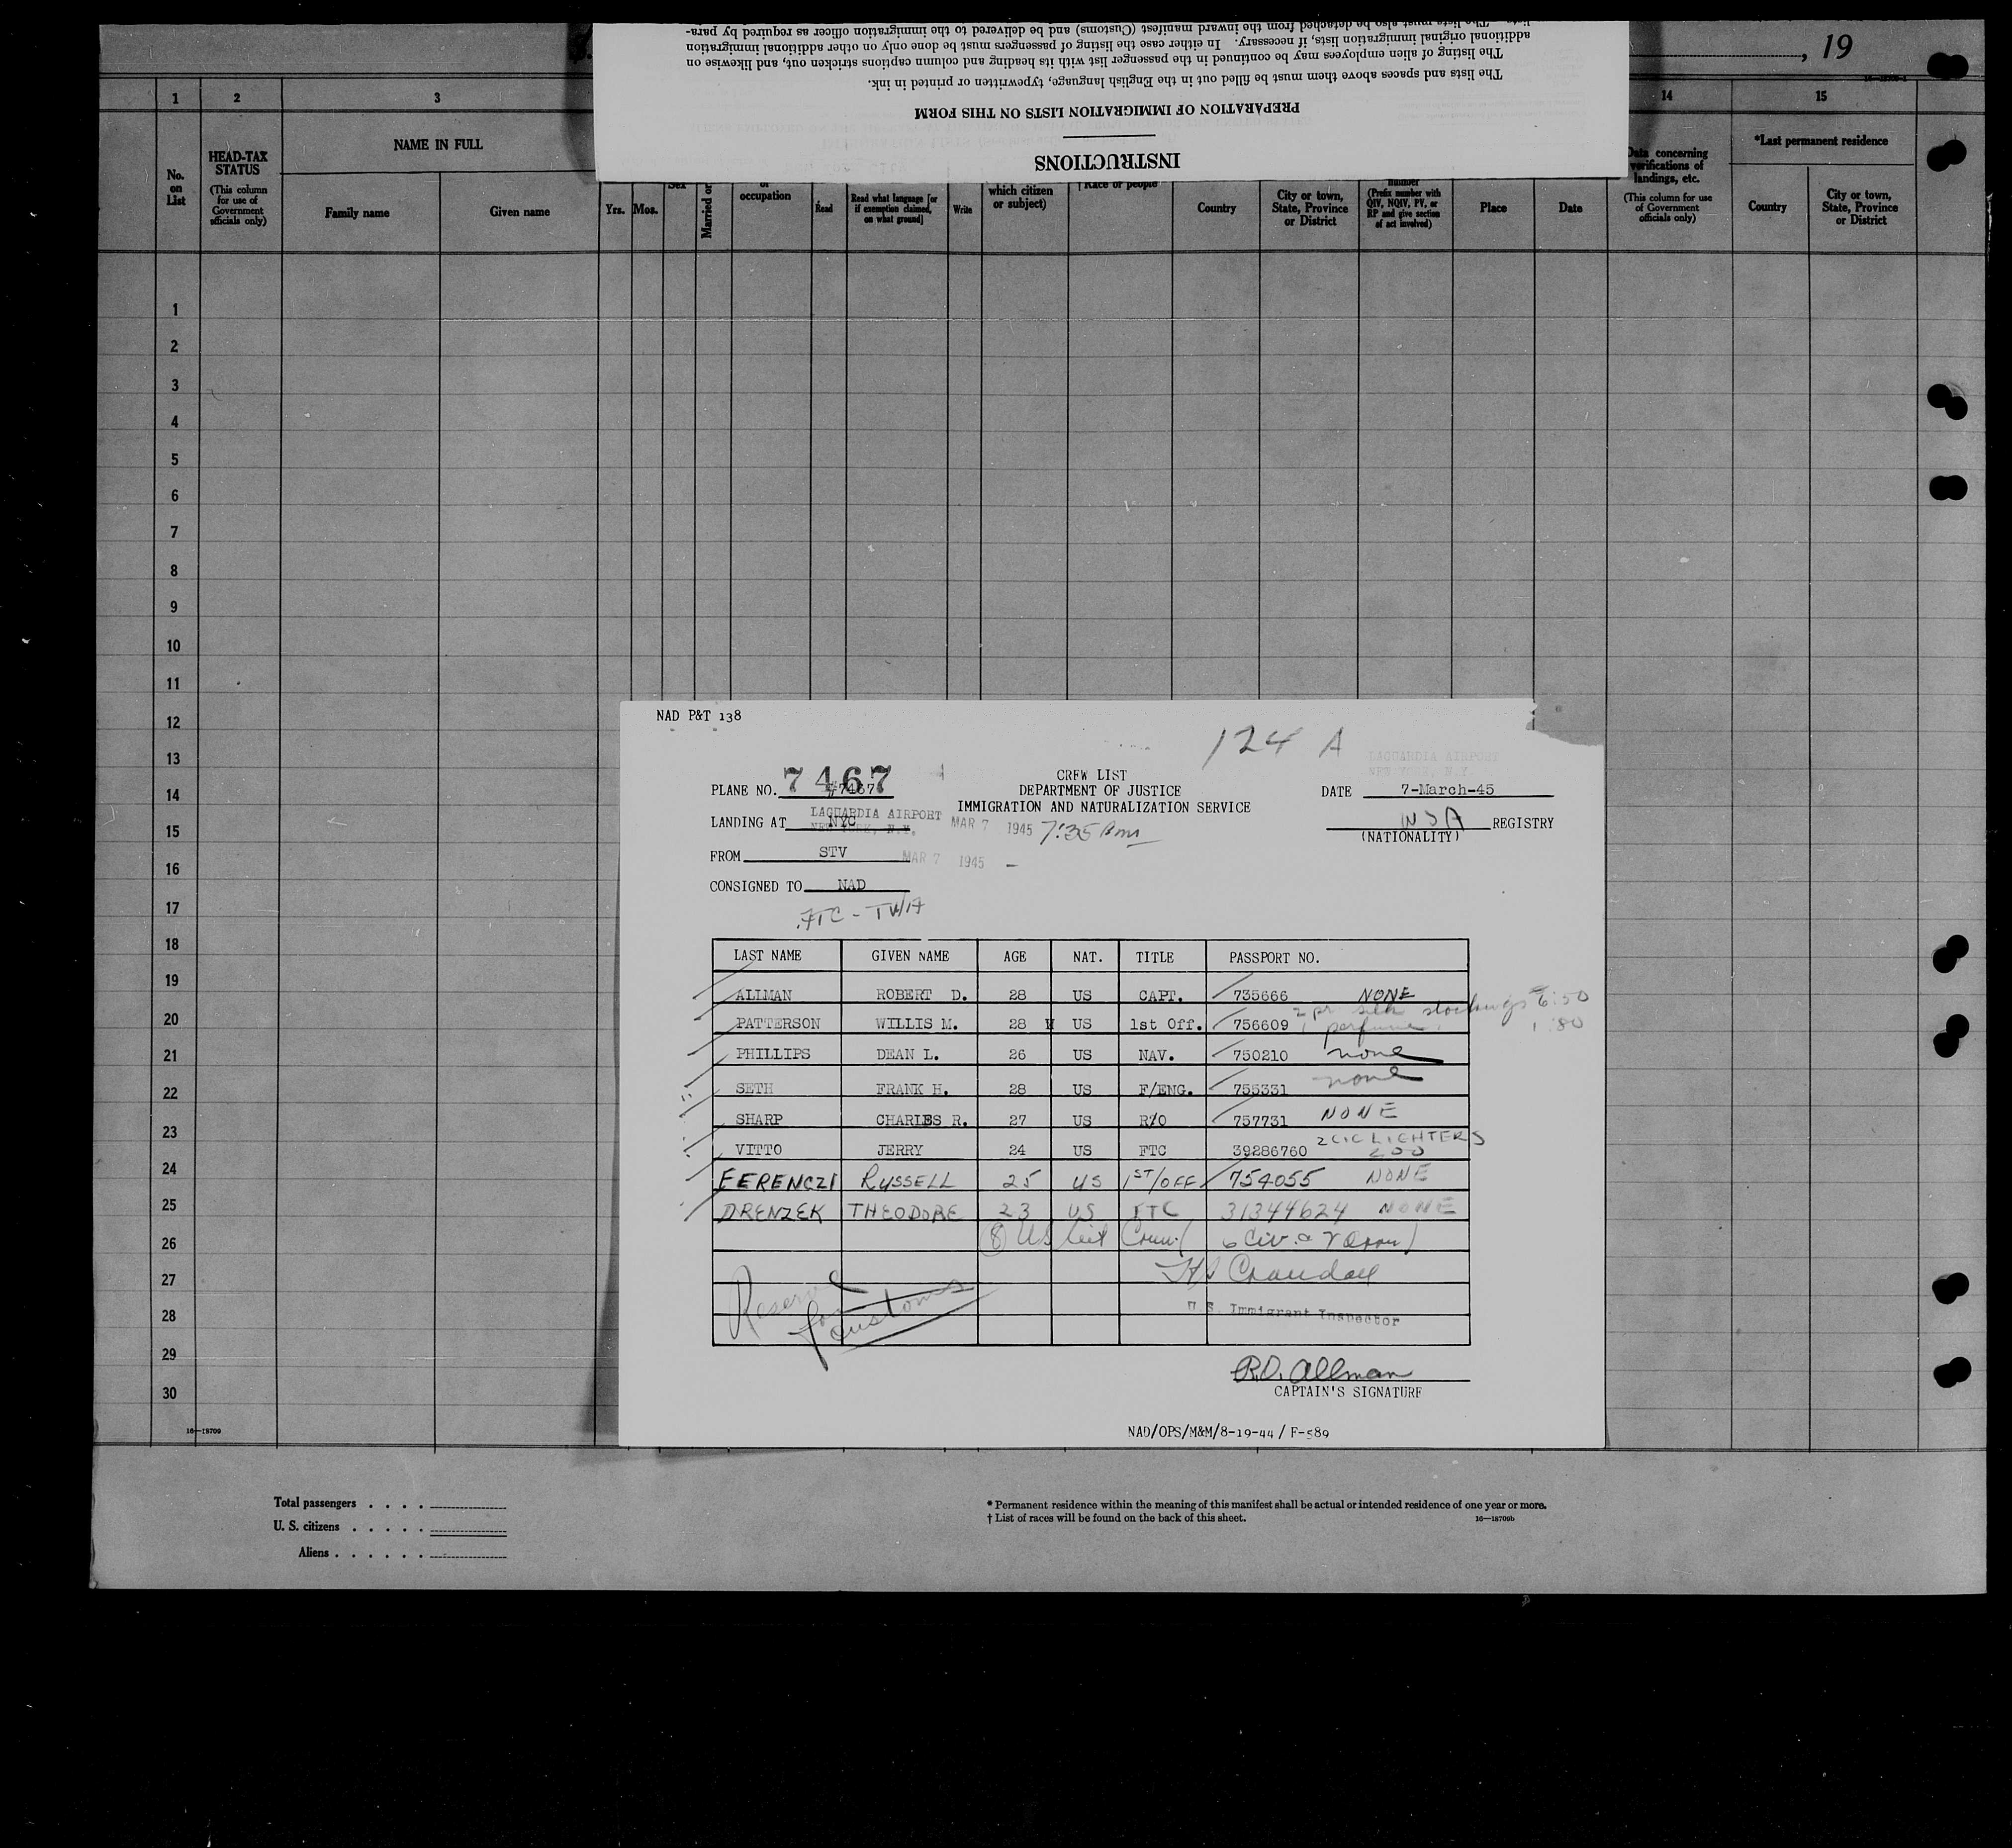 lists. The lists must also be detached from the inward manifest (Customs) and be delivered to the immigration officer as required by para-
additional original immigration lists, if necessary. In either case the listing of passengers must be done only on other additional immigration
The listing of alien employees may be continued in the passenger list with its heading and column captions stricken out, and likewise on
The lists and spaces above them must be filled out in the English language, typewritten or printed in ink.
PREPARATION OF IMMIGRATION LISTS ON THIS FORM
INSTRUCTIONS
, 19
1 2 3 14 15
No. on List
HEAD-TAX STATUS
(This column for use of Government officials only)
NAME IN FULL
Family name Given name
Yrs. Mos.
Sex
Married or
occupation
Read
Read what language [or if exemption claimed, on what ground]
Write
which citizen or subject)
† Race or people
Country
City or town, State, Province or District
number
(Prefix number with QIV, NQIV, PV, or RP and give section of act involved)
Place
Date
Data concerning verifications of landings, etc.
(This column for use of Government officials only)
*Last permanent residence
Country
City or town, State, Province or District
1
2
3
4
5
6
7
8
9
10
11
12
13
14
15
16
17
18
19
20
21
22
23
24
25
26
27
28
29
30
16—18709
NAD P&T 138
124 A
LAGUARDIA AIRPORT
NEW YORK, N.Y.
CREW LIST
DEPARTMENT OF JUSTICE
IMMIGRATION AND NATURALIZATION SERVICE
PLANE NO. 7467 #7467
DATE 7-March-45
LANDING AT NYC LAGUARDIA AIRPORT NEW YORK, N.Y. MAR 7 1945 7:35
REGISTRY
(NATIONALITY)
FROM STV MAR 7 1945
CONSIGNED TO NAD
ATC - TWA
LAST NAME GIVEN NAME AGE NAT. TITLE PASSPORT NO.
ALLMAN ROBERT D. 28 US CAPT. 735666 NONE
PATTERSON WILLIS M. 28 US 1st Off. 756609 2 pr silk stockings 6.50
1 perfume 1.80
PHILLIPS DEAN L. 26 US NAV. 750210 none
SETH FRANK H. 28 US F/ENG. 755331 none
SHARP CHARLES R. 27 US R/O 757731 NONE
VITTO JERRY 24 US FTC 39286760 2 CIC LIGHTERS 200
FERENCZI RUSSELL 25 US 1ST/OFF 754055 NONE
DRENZEK THEODORE 23 US FTC 31344624 NONE
8 US
Reserved for Customs
Crandall
U.S. Immigrant Inspector
R.D. Allman
CAPTAIN'S SIGNATURE
NAD/OPS/M&M/8-19-44 / F-589
Total passengers
U. S. citizens
Aliens
* Permanent residence within the meaning of this manifest shall be actual or intended residence of one year or more.
† List of races will be found on the back of this sheet.
16—18709b